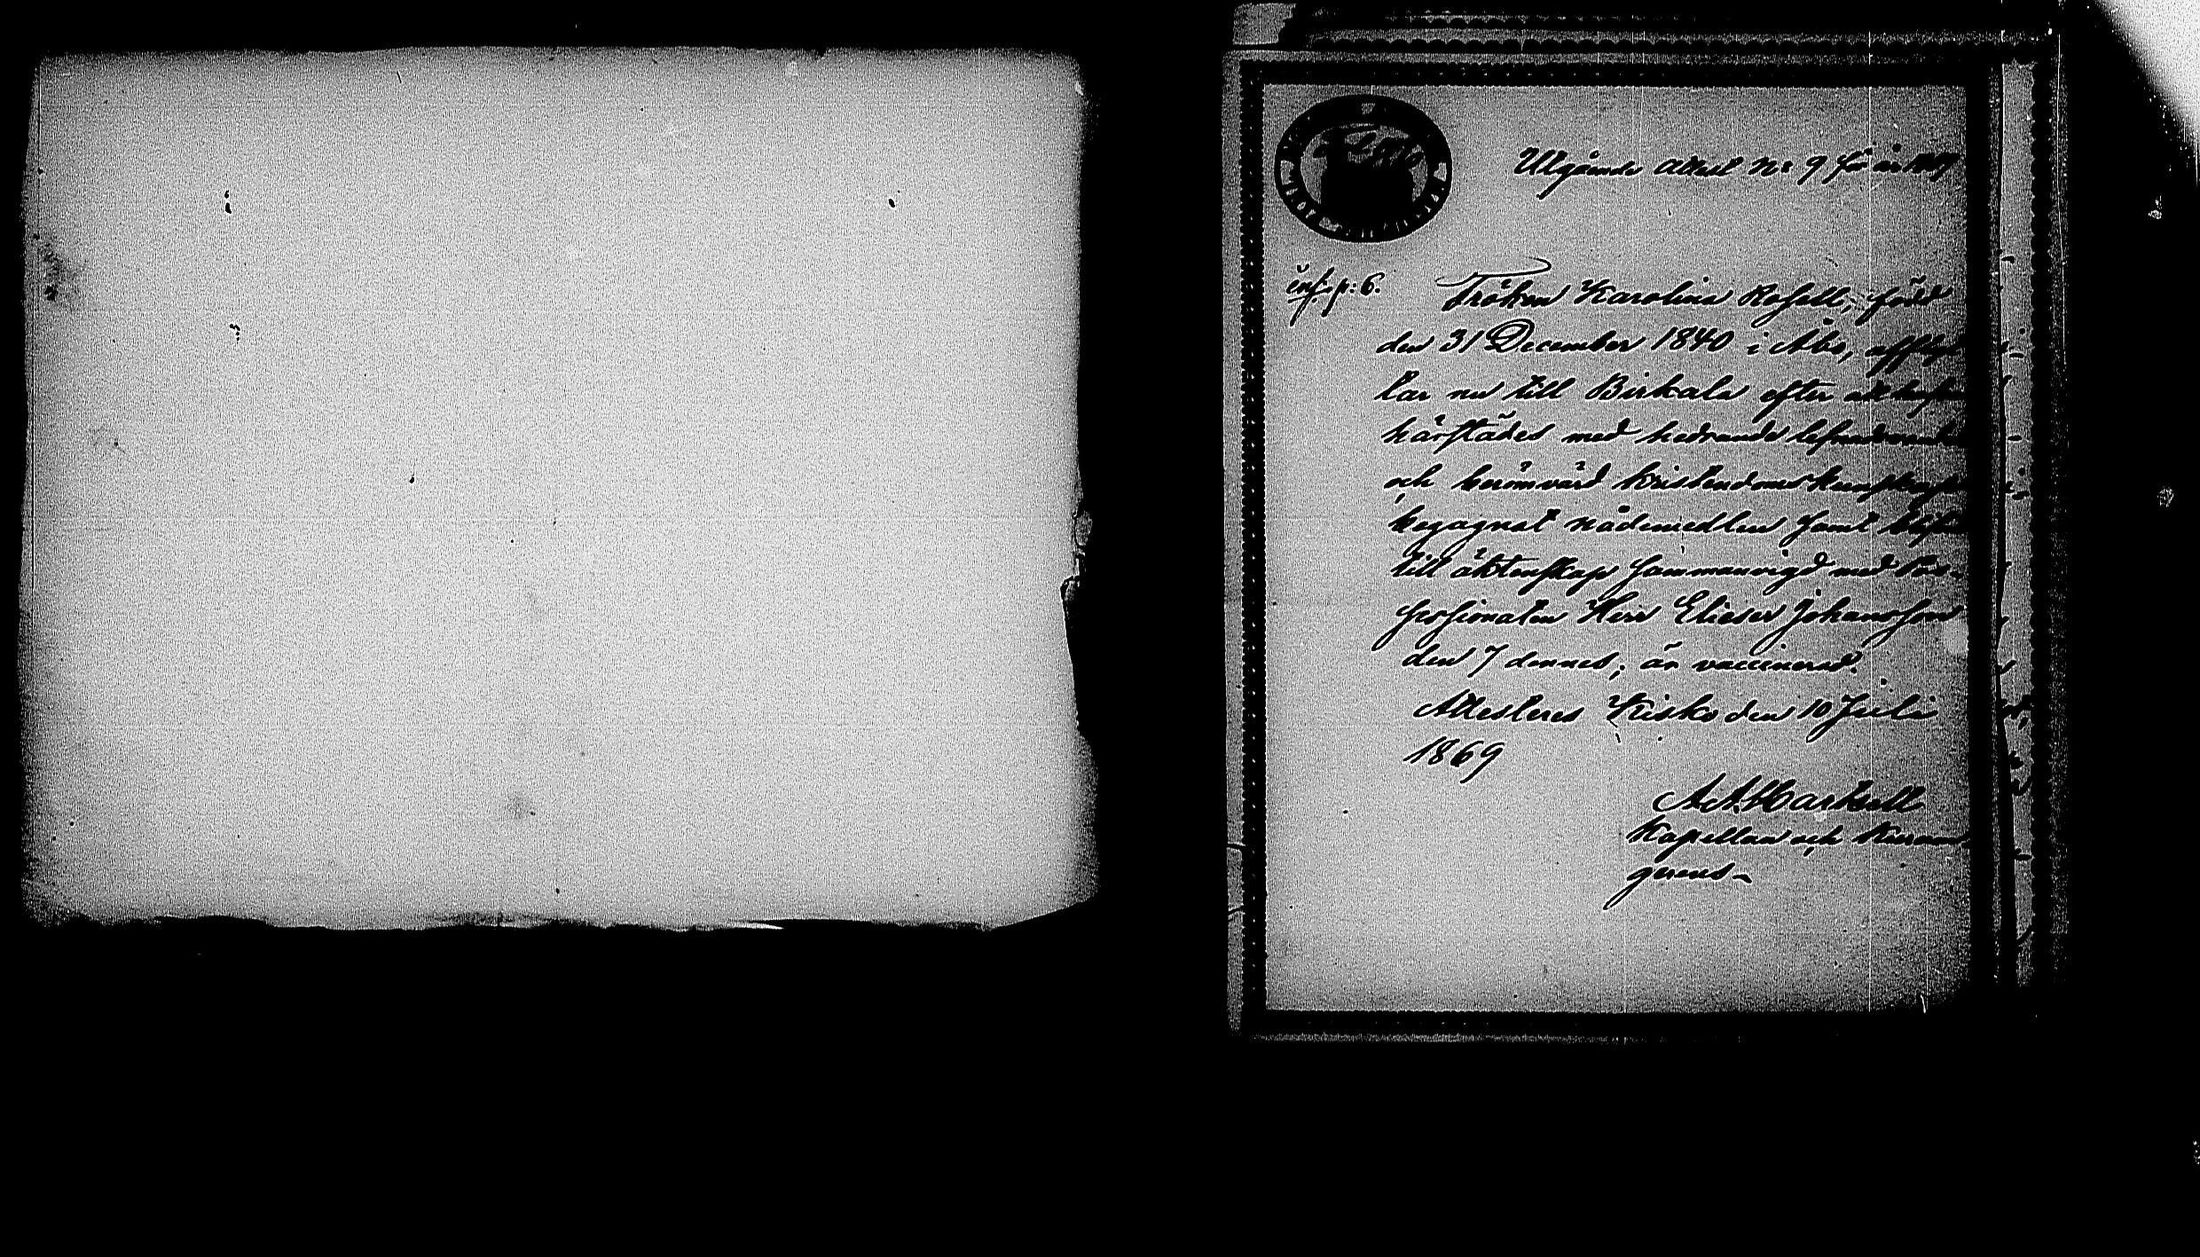 Utgående Attest No 9 för år 1869
inf. p: 6. Fröken Karolina Rosell, född
den 31 December 1840 i Åbo, afflyt
tar nu till Birkala efter att hafva
härstädes med hedrande lefnadsvandel
och berömvärd kristendomskunskap
begagnat nådemedlen samt blifvit
till äktenskap sammanvigd med
Herr Elieser Johansson
den 7 dennes; är vaccinerad.
Attesteras Kisko den 10 Juli
1869
Kapellan och
gerens